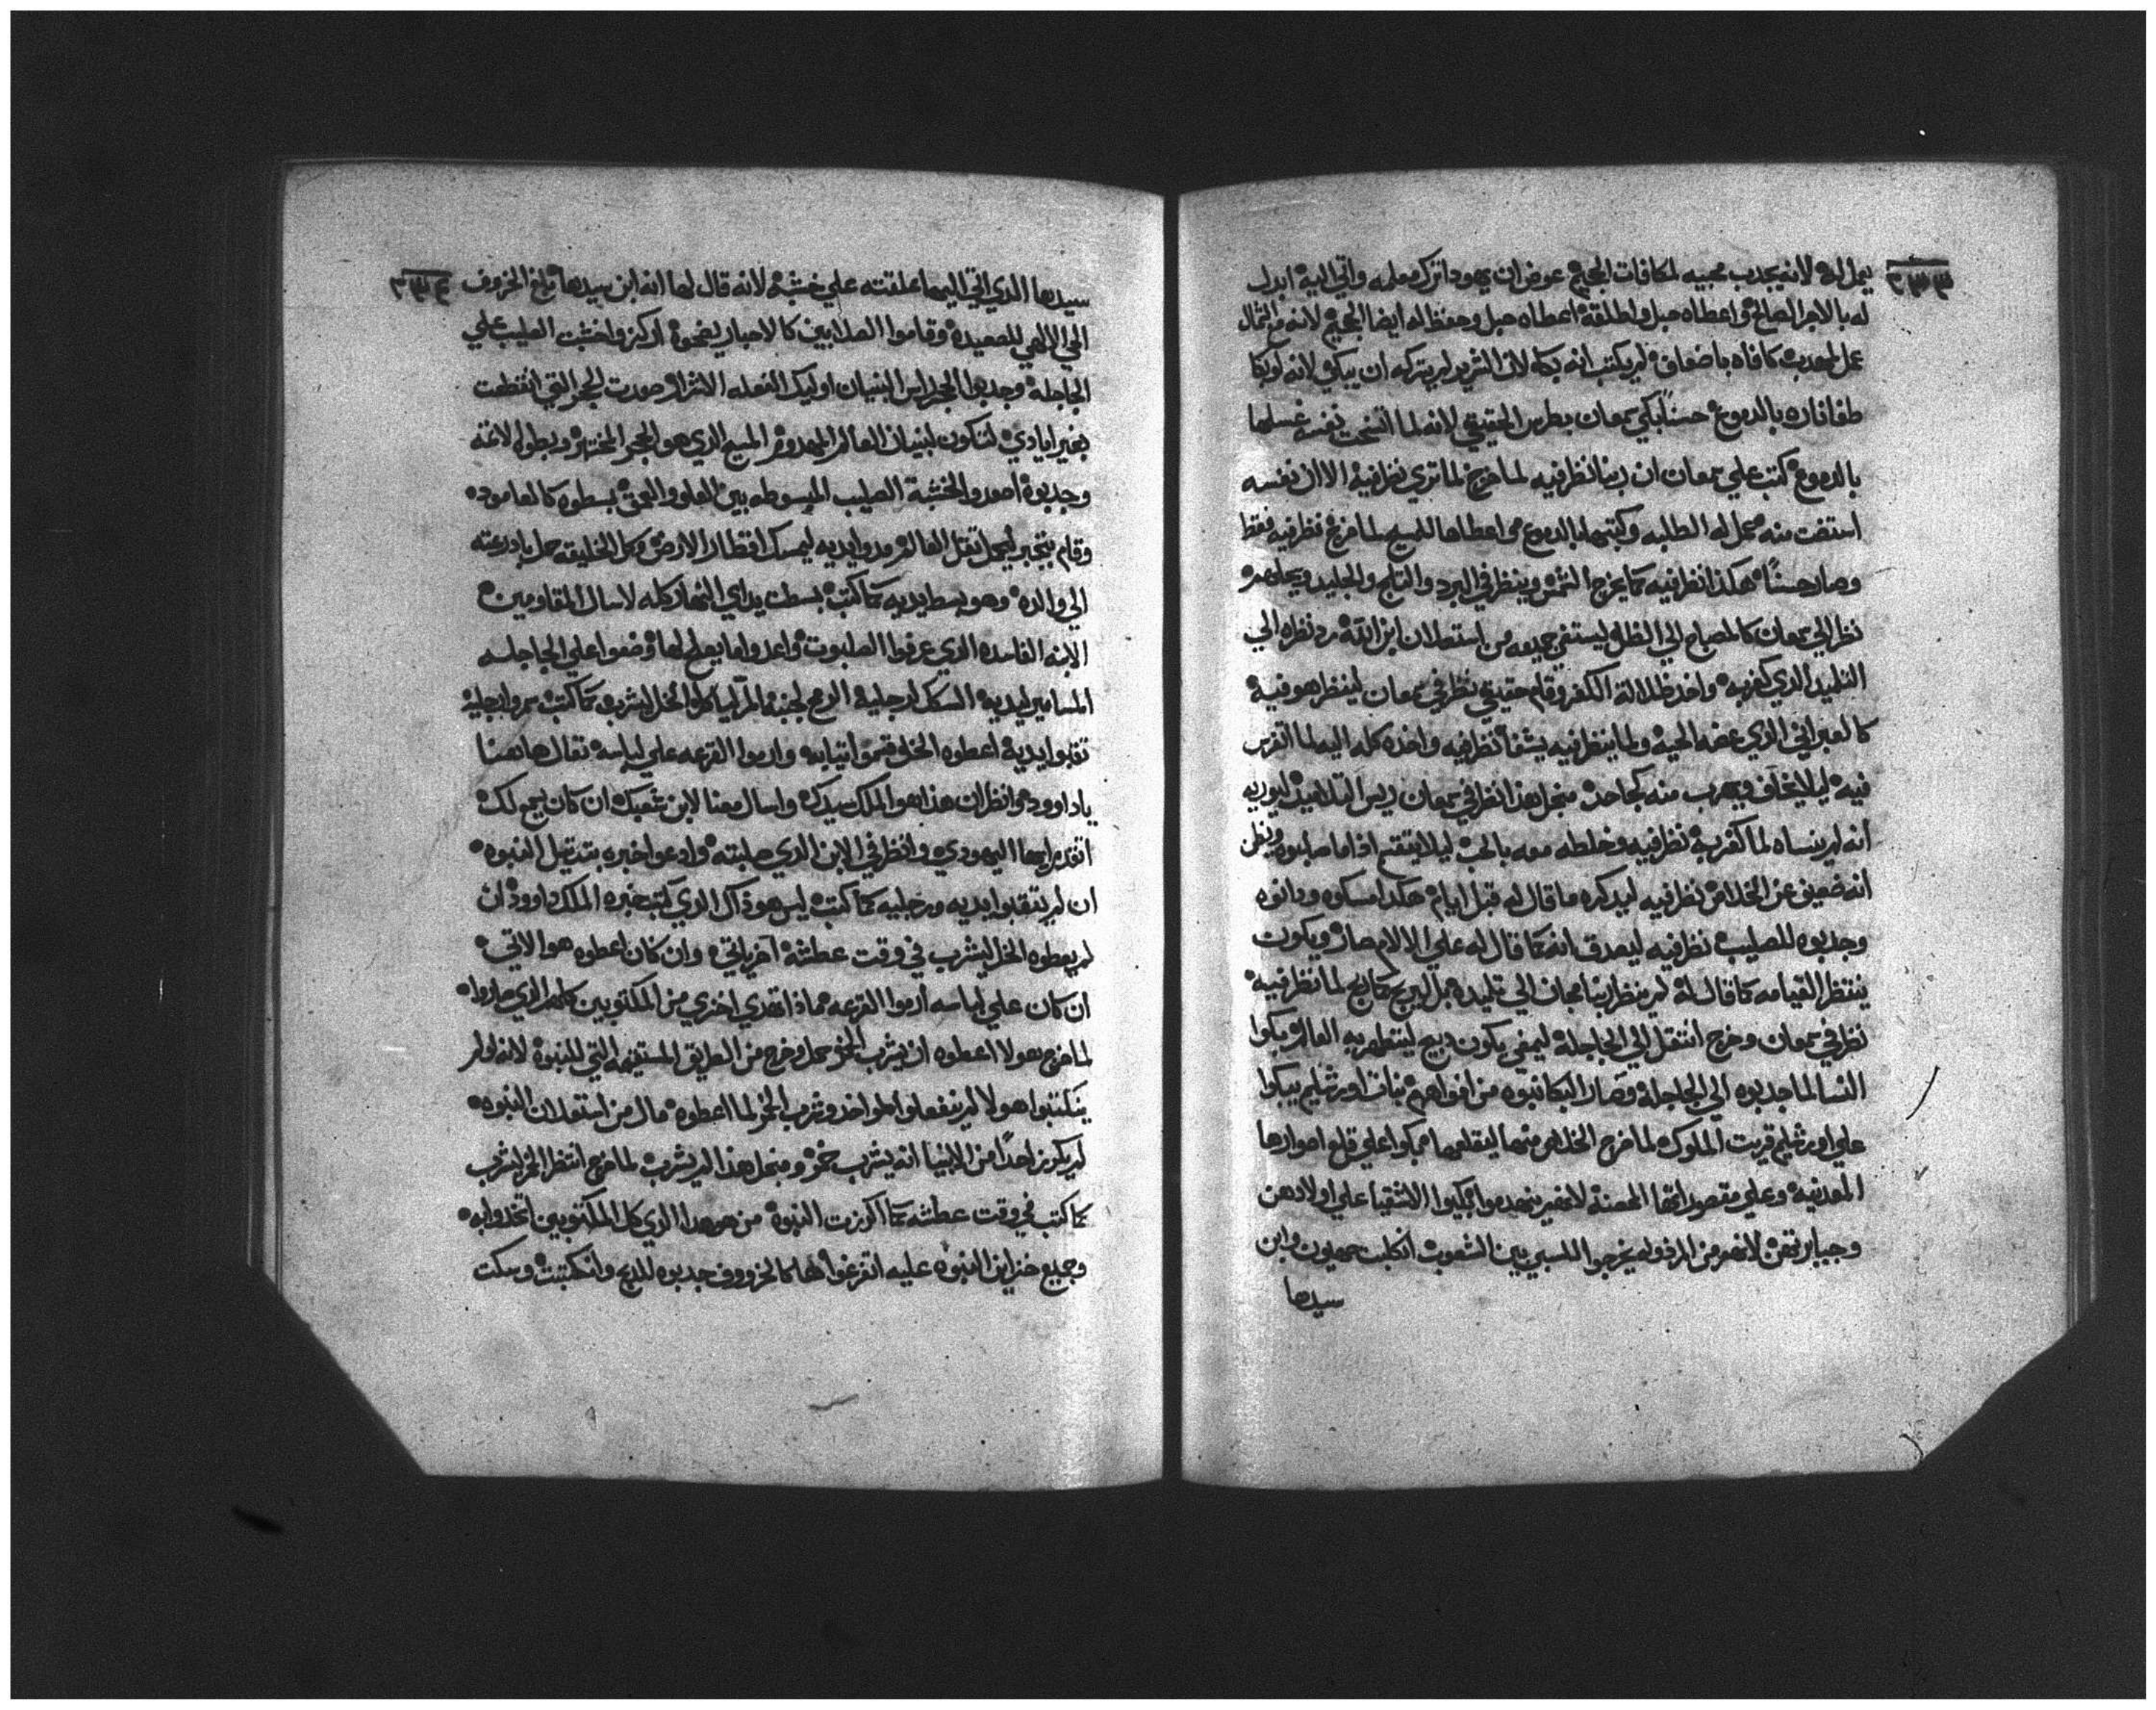 ٣٣٣
يعمل له لانه يجدب محبيه لمكافات الجحيم عوض ان يهودا ترك معلمه واتي اليه ابدل
له بالاجر الصالح واعطاه حبل واطلقه اعطاه حبل وحفظ له ايضا الجحيم لانه مع الشمال
عمل لهدب كافاه باضعاف لم يكتب انه بكا لان الشرير لم يتركه ان يبكي لانه لو بكا
طفا ناره بالدموع حسناً بكي سمعان بطرس الحقيقي لانه لما اتسخت نفسه غسلها
بالدموع كتب علي سمعان ان ربنا نظر فيه لما خرج لما تري نظر فيه الا ان نفسه
استفت منه عمل له الطلبه وكتبها بالدموع اعطاها للمسيح لما خرج نظر فيه فقط
وصار حسناً هكذا نظر فيه كما يخرج الشمس وينظر في البرد والثلج والجليد ويحلهم
نظر الي سمعان كالمصباح الي الظل ليستفي جميعه من استعلان ابن الله رد نظره الي
التلميد الذي كفر به واخد ظلالة الكفر وقام حقيقي نظر في سمعان لينظر هو فيه
كالعبراني الذي عضه الحيه ولما ينظر فيه يشفا نظر فيه واخده كله اليه لما اتفرس
فيه ليلا يخاف ويهرب منه كجاحد منجل هذا نظر في سمعان ريس التلاميد ليوريه
انه لم ينساه لما كفر به نظر فيه وخلطه معه بالحب ليلا ينقسم اذا ما صلبوه ويظن
انه ضعيف عن الخلاص نظر فيه ليدكره ما قال له قبل ايام هكدا امسكوه ودانوه
وجدبوه للصليب نظر فيه ليصدق انه كما قال له علي الالام صار ويكون
ينتظر القيامه كما قال له لم ينظر ربنا مجان الي تلميده بل لربح كان يربح لما نظر فيه
نظر في سمعان وخرج انتقل الي الجاجلة ليمضي يكون دبيح ليتطهر به العالم بكوا
النسا لما جدبوه الي الجاجلة وصار البكا نبوه من افواههم بنات اورشليم يبكوا
علي اورشليم قريت الملوك لما خرج الخلاص منها ليقلعها بكوا علي قلع اسوارها
المدنيه وعلي مقصوراتها الحصنة لانهم ينهدموا بكيوا الاشقيا علي اولادهن
وجبابرتهن لانهم من المرفوله يخرجوا للسبي بين الشعوب اتكلبت صهيون وابن
سيدها
٣٣٤
سيدها الذي اتي اليها علقته علي خشبه لانه قال لها انه ابن سيدها بلغ الخروف
الحي الالهي للصعيده وقاموا الصلابين كالاحبار يضحوه اركزوا خشبت الصليب علي
الجاجلة وجدبوا الحجر اس البنيان اوليك الفعله الاشرار صورت الحجر التي انقطعت
بغير ايادي لتكون لبنيان العالم المهدوم المسيح الذي هو الحجر المختار وبطوله لاغته
وجدبوه اصعدوا لخشبة الصليب المبسوطه بين العلو والعمق بسطوه كالعاموده
وقام بتجبر ليحمل ثقل العالم ومدوا يديه ليمسك اقطار الارض وكل الخليقه حمل بادرعته
الي والده وهو بسط يديه كما كتب بسطت يداي النهار كله لاسال المقاومين
الابنه الفاسده الذي عرفوا الصلبوت واعدوا ما يصلح لها وضعوا علي الجاجلسه
المسامير ليديه السكك لرجليه الرمح لجنبه المر لياكل والخل ليشرب كما كتب سمروا رجليه
تقبوا يديه اعطوه الخل قسموا تيابه وارموا القرعه علي لباسه تعال هاهنا
يا داوود وانظر ان هذا هو الملك سيدك واسال معنا لابن شعبك ان كان يسمع لك
اتقدم ايها اليهودي وانظر في الابن الذي صلبته وادعوا خبره بتدقيل النبوه
ان لم يتقبوا يديه ورجليه كما كتب ليس هو داك الذي كتب خبره الملك داوود ان
لم يعطوه الخل ليشرب في وقت عطشه آخر ياتي وان كان اعطوه هو الاتي
ان كان علي لباسه ارموا القرعه مماذا تهدي اخزي من المكتوبين كلهم الذي صاروا
لما خرج هولا اعطوه ان يشرب الخمر وخرج من الطريق المستقيمه التي للنبوه لانه لو لم
ينكتبوا هولا لم يتفعلوا لو اخد وشرب الخمر لما اعطوه مال من استعلان النبوه
لم يكرز احداً من الانبيا انه يشرب خمر ومنجل هذا لم يشرب لما خرج انتظر الخل ليشرب
كما كتب في وقت عطشه كما اكرزت النبوه من هو هدا الذي كل المكتوبين اتخدوا به
وجميع خزاين النبوه عليه اتفرغوا ها كالخروف جدبوه للدبح وانكتبت وسكت